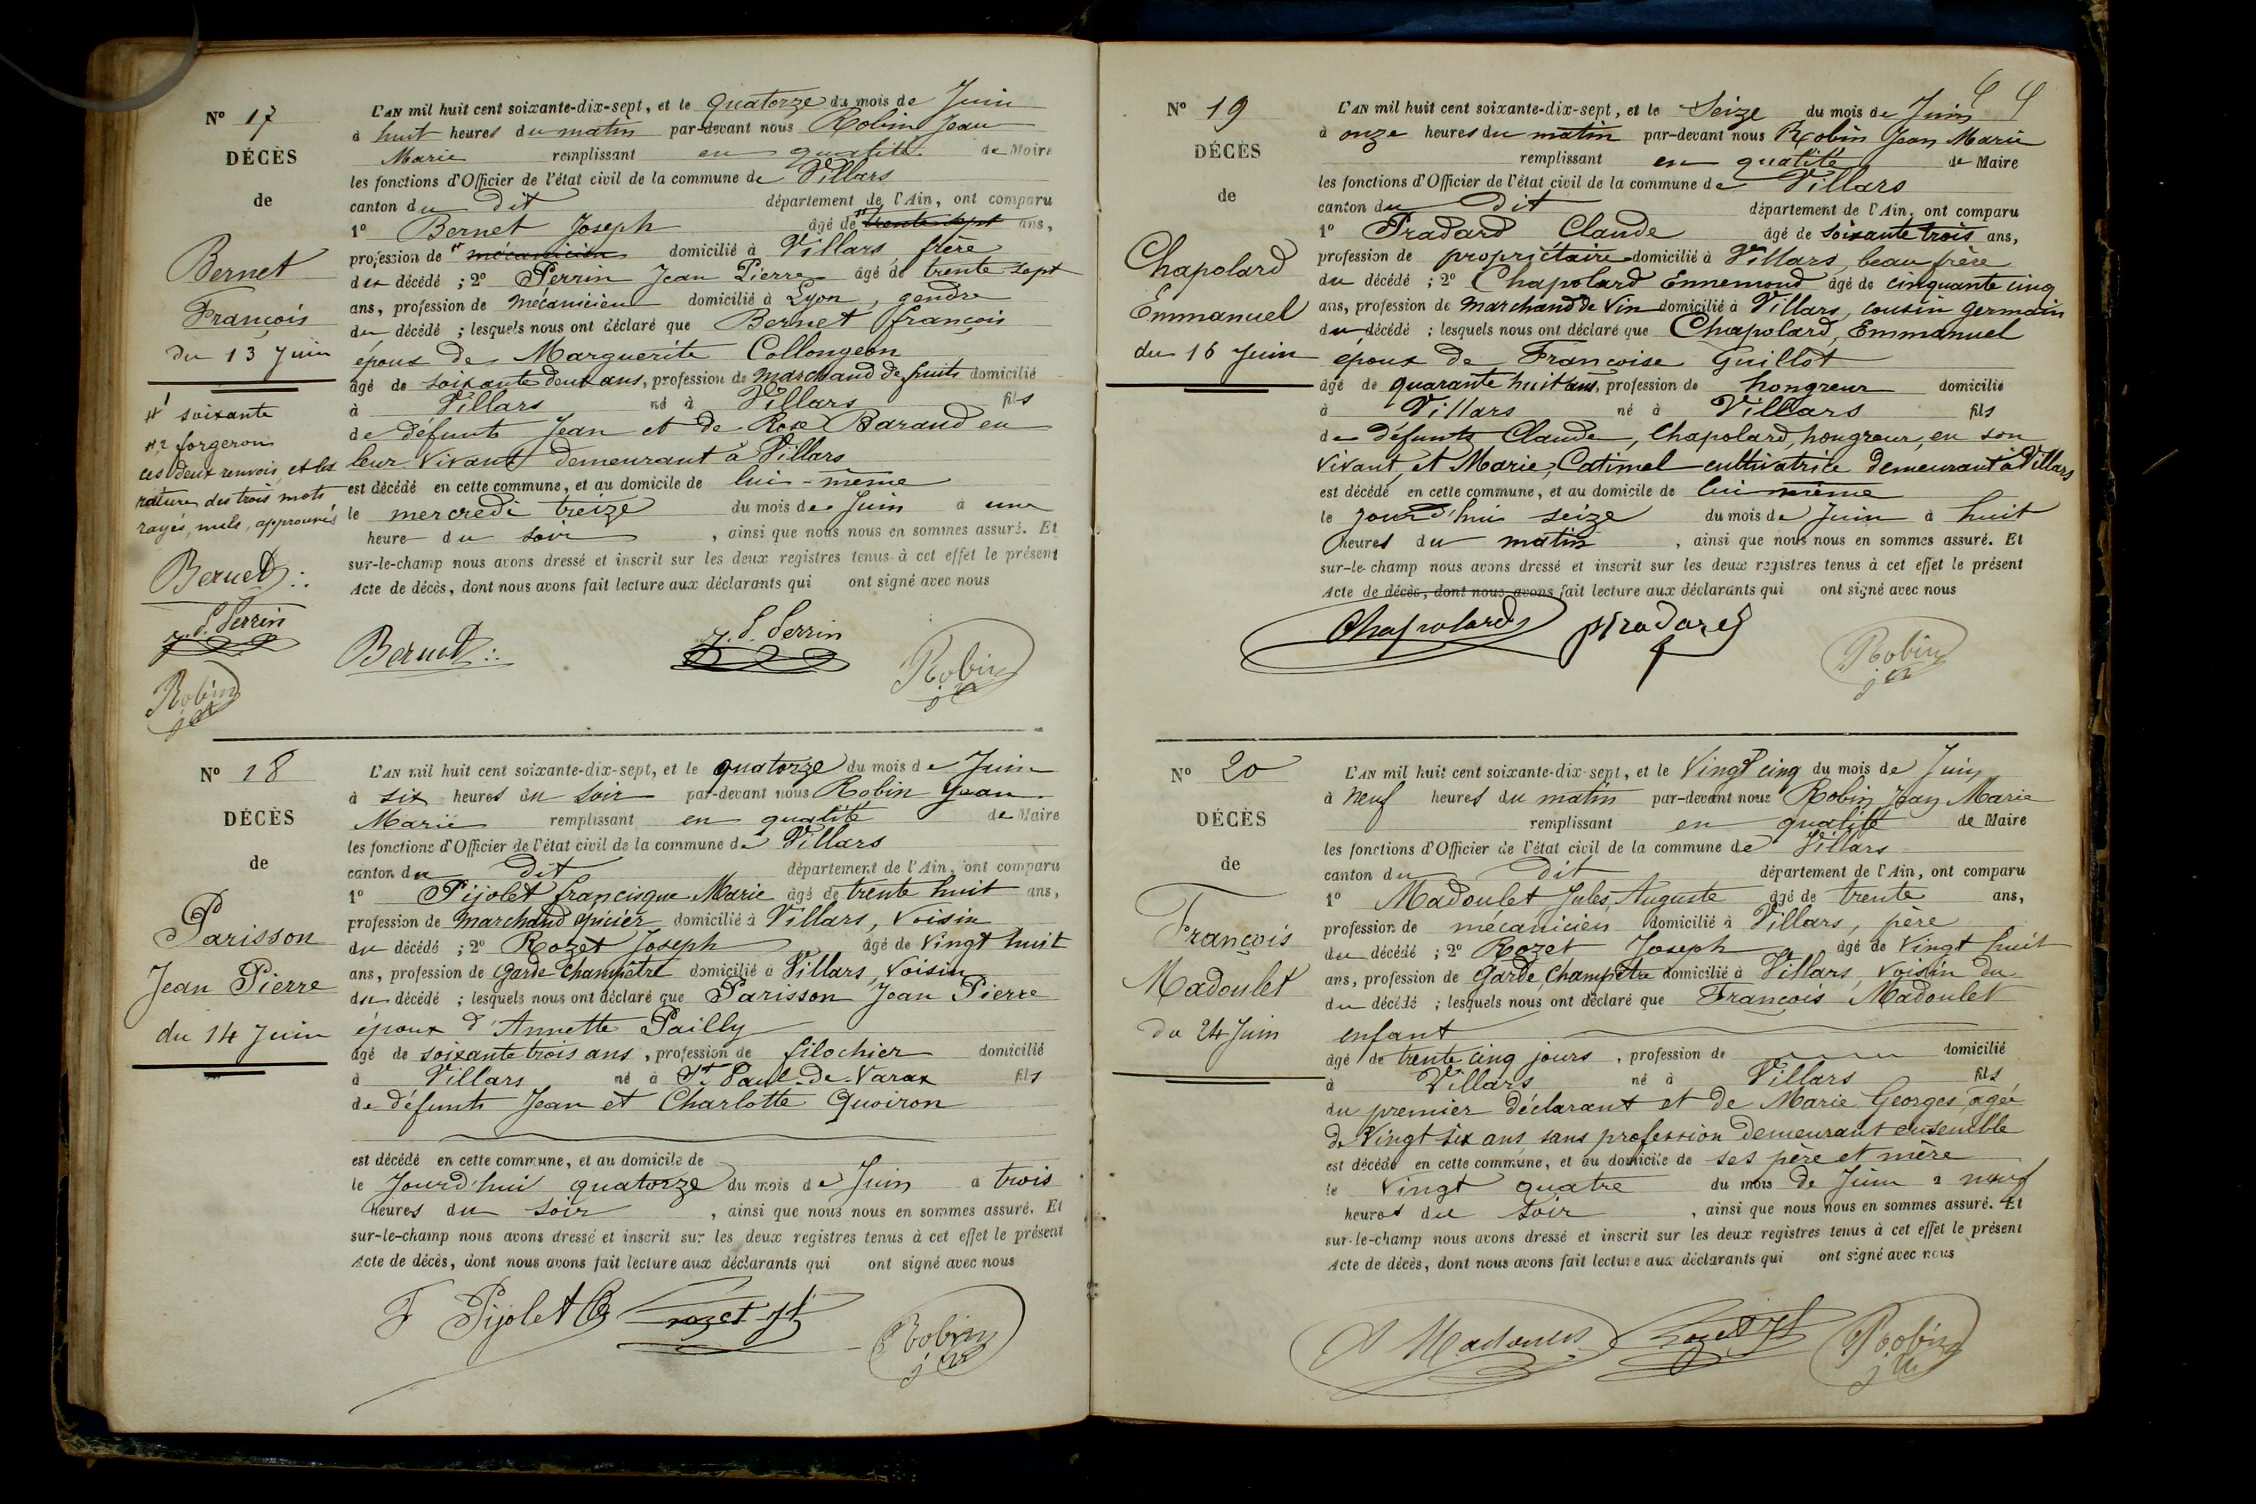 N° 17
DÉCÈS
de
Bernet
François
du 13 Juin
#1 soixante
#2 forgeron
ces deux renvois, et les
rature des trois mots
rayés, nuls, approuvés
Bernet
J. P. Perrin
Robin
L'AN mil huit cent soixante-dix-sept, et le quatorze du mois de Juin
à huit heures du matin par-devant nous Robin Jean
Marie remplissant en qualité de Maire
les fonctions d'Officier de l'état civil de la commune de Villars
canton du dit département de l'Ain, ont comparu
1° Bernet Joseph âgé de #1 trente sept ans,
profession de #2 mécanicien domicilié à Villars frère
du décédé ; 2° Perrin Jean Pierre âgé de trente-sept
ans, profession de mécanicien domicilié à Lyon, gendre
du décédé ; lesquels nous ont déclaré que Bernet françois
époux de Marguerite Collongeon
âgé de soixante deux ans, profession de marchand de fruits domicilié
à Villars né à Villars fils
de défunts Jean et de Rose Baraud en
leur vivant demeurant à Villars
est décédé en cette commune, et au domicile de lui-même
le mercredi treize du mois de Juin à une
heure du soir , ainsi que nous nous en sommes assuré. Et
sur-le-champ nous avons dressé et inscrit sur les deux registres tenus à cet effet le présent
Acte de décès, dont nous avons fait lecture aux déclarants qui ont signé avec nous
Bernet J. P. Perrin Robin
N° 18
DÉCÈS
de
Parisson
Jean Pierre
du 14 Juin
L'AN mil huit cent soixante-dix-sept, et le quatorze du mois de Juin
à six heures du soir par-devant nous Robin Jean
Marie remplissant en qualité de Maire
les fonctions d'Officier de l'état civil de la commune de Villars
canton du dit département de l'Ain, ont comparu
1° Pijolet francisque Marie âgé de trente huit ans,
profession de marchand épicier domicilié à Villars, voisin
du décédé ; 2° Rozet Joseph âgé de vingt huit
ans, profession de Garde champêtre domicilié à Villars, voisin
du décédé ; lesquels nous ont déclaré que Parisson Jean Pierre
époux d'Annette Pailly
âgé de soixante trois ans, profession de filochier domicilié
à Villars né à St Paul-de-Varax fils
de défunts Jean et Charlotte Quoiron
est décédé en cette commune, et au domicile de
le Jourd'hui quatorze du mois de Juin à trois
heures du soir , ainsi que nous nous en sommes assuré. Et
sur-le-champ nous avons dressé et inscrit sur les deux registres tenus à cet effet le présent
Acte de décès, dont nous avons fait lecture aux déclarants qui ont signé avec nous
F Pijolet Rozet Robin
N° 19
DÉCÈS
de
Chapolard
Emmanuel
du 16 Juin
L'AN mil huit cent soixante-dix-sept, et le Seize du mois de Juin
à onze heures du matin par-devant nous Robin Jean Marie
remplissant en qualité de Maire
les fonctions d'Officier de l'état civil de la commune de Villars
canton du dit département de l'Ain, ont comparu
1° Pradard Claude âgé de soixante trois ans,
profession de propriétaire domicilié à Villars, beau frère
du décédé ; 2° Chapolard Ennemond âgé de cinquante cinq
ans, profession de marchand de vin domicilié à Villars, cousin germain
du décédé ; lesquels nous ont déclaré que Chapolard, Emmanuel
époux de Francoise Guillot
âgé de quarante huit ans, profession de hongreur domicilié
à Villars né à Villars fils
de défunts Claude, Chapolard, hongreur, en son
vivant, et Marie, Catimel cultivatrice demeurant à Villars
est décédé en cette commune, et au domicile de lui même
le jourd'hui seize du mois de Juin à huit
heures du matin , ainsi que nous nous en sommes assuré. Et
sur-le-champ nous avons dressé et inscrit sur les deux registres tenus à cet effet le présent
Acte de décès, dont nous avons fait lecture aux déclarants qui ont signé avec nous
Chapolard Pradard Robin
N° 20
DÉCÈS
de
François
Madoulet
du 24 Juin
L'AN mil huit cent soixante-dix-sept, et le vingt cinq du mois de Juin
à neuf heures du matin par-devant nous Robin Jean Marie
remplissant en qualité de Maire
les fonctions d'Officier de l'état civil de la commune de Villars
canton du dit département de l'Ain, ont comparu
1° Madoulet Jules, Auguste âgé de trente ans,
profession de mécanicien domicilié à Villars, père
du décédé ; 2° Rozet Joseph âgé de vingt huit
ans, profession de Garde, Champêtre domicilié à Villars, voisin du
du décédé ; lesquels nous ont déclaré que Francois Madoulet
enfant
âgé de trente cinq jours, profession de domicilié
à Villars né à Villars fils
du premier déclarant et de Marie Georges, agée
de vingt six ans sans profession demeurant ensemble
est décédé en cette commune, et au domicile de ses père et mère
le vingt quatre du mois de Juin à neuf
heures du soir , ainsi que nous nous en sommes assuré. Et
sur-le-champ nous avons dressé et inscrit sur les deux registres tenus à cet effet le présent
Acte de décès, dont nous avons fait lecture aux déclarants qui ont signé avec nous
Madoulet Rozet Robin